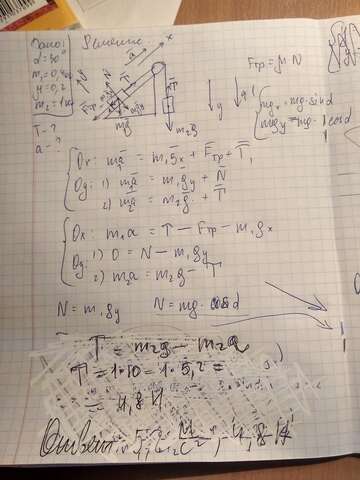 Дано: Решение:
α=30°
m₁=0,4кг
μ=0,2
m₂=1кг
T-?
a-?
x
a
T
Fтр
m₁g
m₂g
y
Fтр=μN
mgx=mg·sinα
mgy=mg·cosα
Ox: m₁a = m₁gx + Fтр + T₁
Oy: 1) m₁a = m₁gy + N
2) m₂a = m₂g + T
Ox: m₁a = T - Fтр - m₁gx
Oy: 1) 0 = N - m₁gy
2) m₂a = m₂g - T
N=m₁gy N=mg·cosα
T = m₂g - m₂a
T=1·10-1·5,2=
= 4,8 Н
Ответ: 5,2 м/с², 4,8 Н